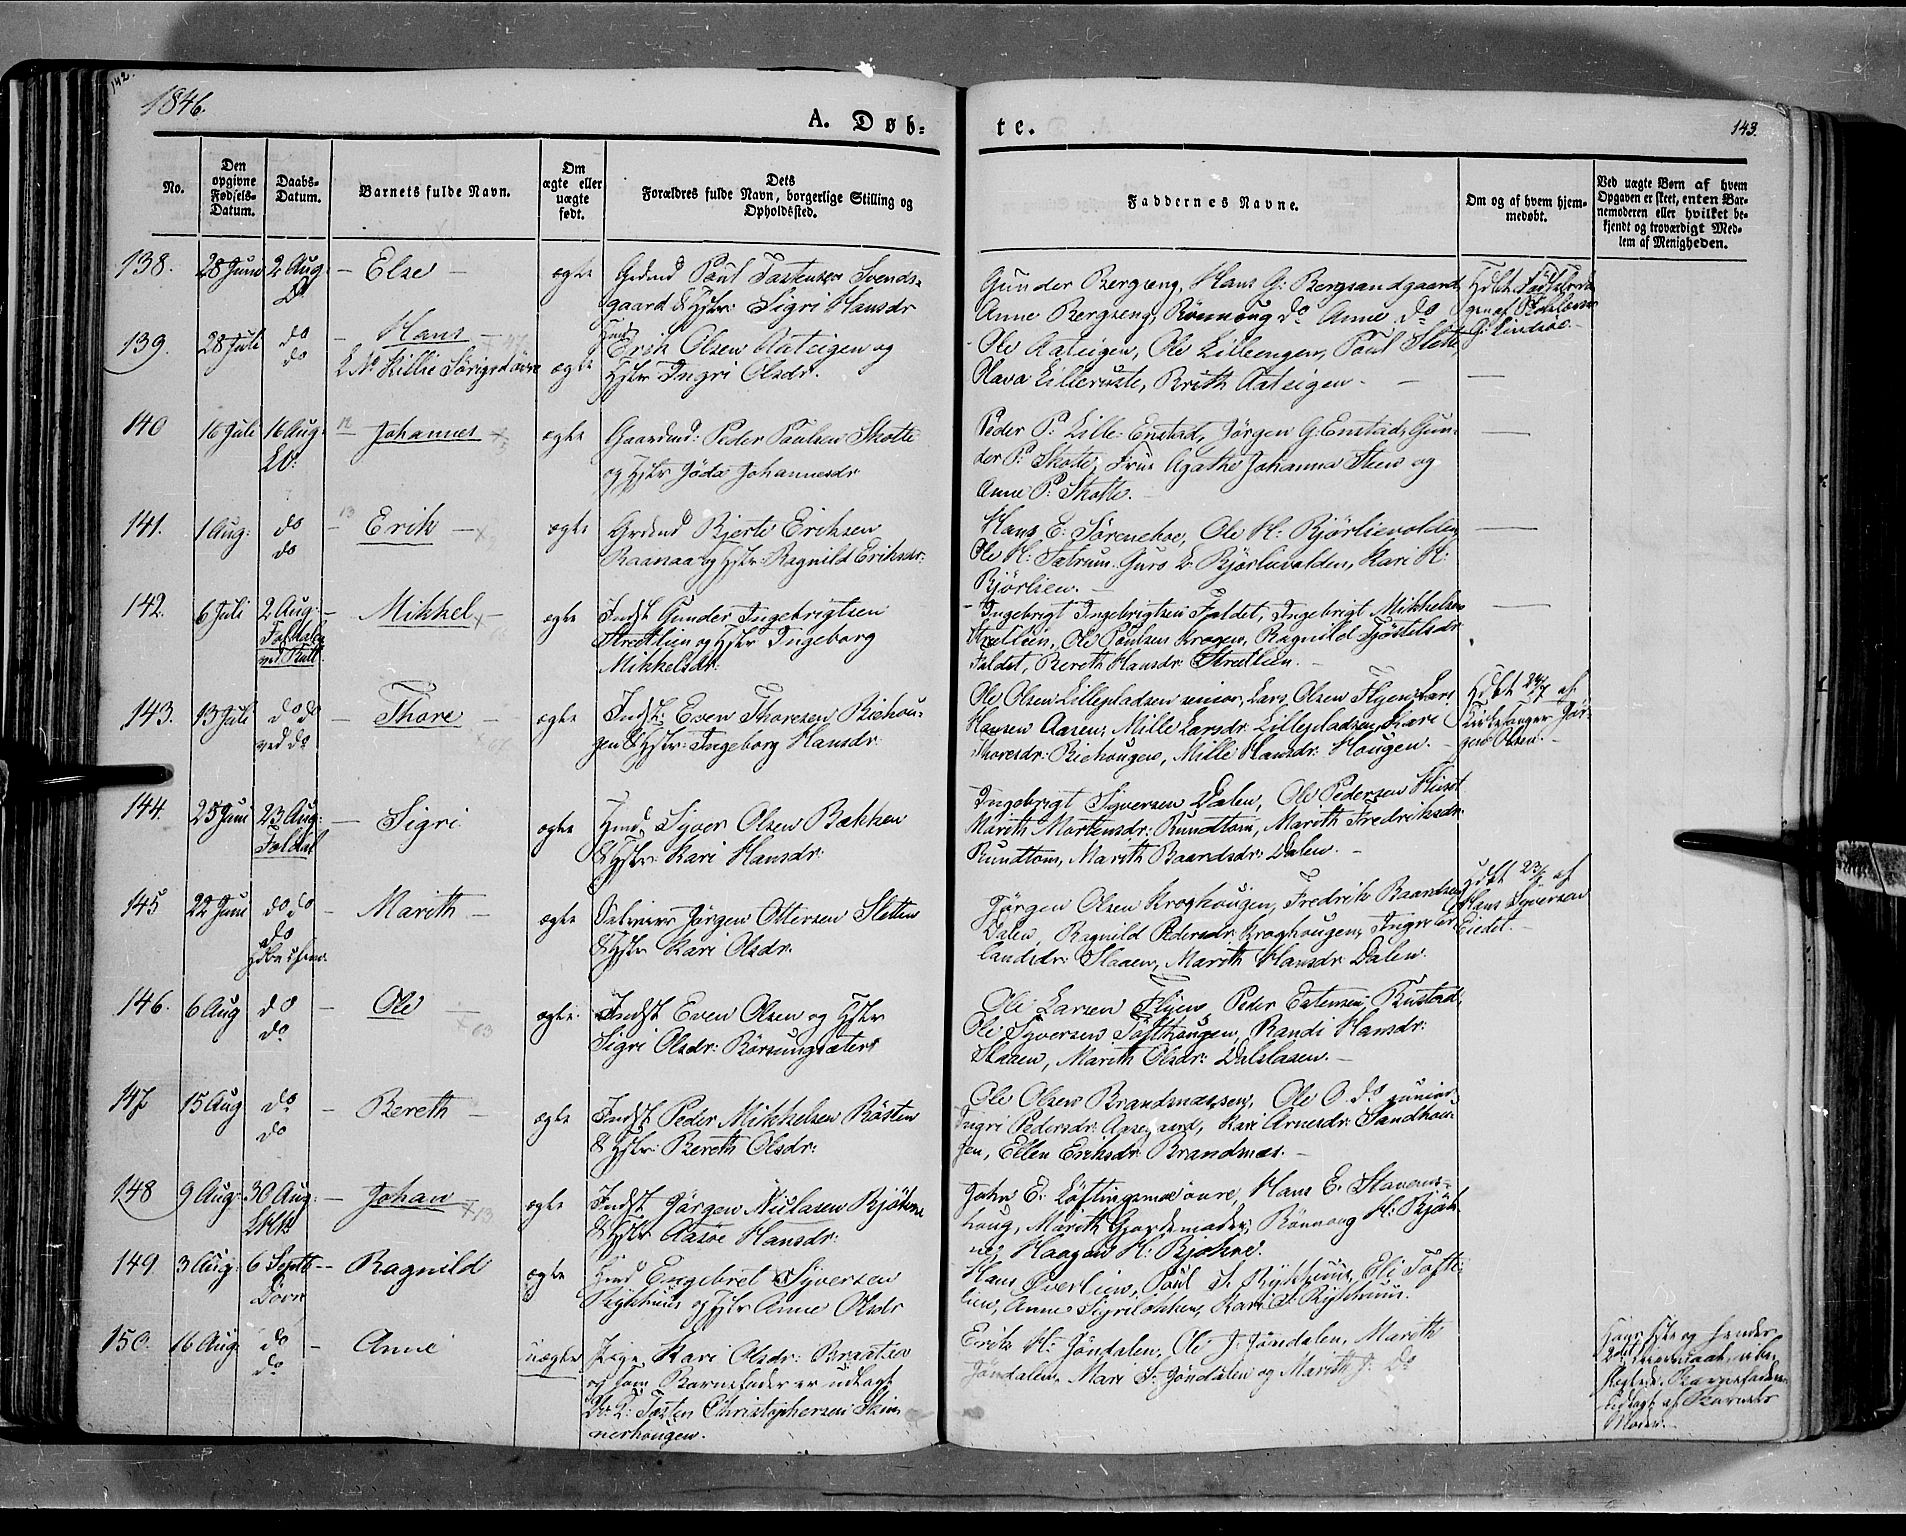 142.
1846.
A. Døb-
te.
143.
No.
Den opgivne Fødsels-Datum.
Daabs-Datum.
Barnets fulde Navn.
Om ægte eller uægte født.
Dets Forældres fulde Navn, borgerlige Stilling og Opholdssted.
Faddernes Navne.
Om og af hvem hjem-medøbt.
Ved uægte Børn af hvem Opgaven er skeet, enten Bar-nemoderen eller hvilket be-kjendt og troværdigt Med-lem af Menigheden.
138. 28 Juni 2 Aug: – Else – ægte
Paul Tostensen Svends-
gaard & Hstr: Sigri Hansdr
Gunder Bergseng, Hans G: Bergsandgaard
Anne Bergseng, Rønnoug do Anne do
139. 28 Juli do do – Hans – ægte
Erik Olsen Aateigen og
Hstr Ingri Olsdr.
Ole Aateigen, Ole Lilleengen, Paul Slette,
Olava Lilleruste, Brith Aateigen. –
140 16 Juli 16 Aug: Johannes – ægte
Gaardmd: Peder Paulsen Skotte
og Hstr Jøda Johannesdr
Peder P: Lille-Enstad, Jørgen G: Enstad, Gun-
der P: Skotte, Frue Agathe Johanna Steen og
Anne P: Skotte. –
141. 1 Aug: do do – Erik – ægte
Bjerte Eriksen
Raanaa og Hstr: Ragnild Eriksdr:
Hans E: Sørenehoe, Ole H: Bjørlievolden,
Ole H: Sætrum, Guro E: Bjørlivolden, Kari H:
Bjørlien. –
142. 6 Juli 2 Aug: – Mikkel – ægte
Indst Gunder Ingebrigtsen
Strædlien og Hstr Ingeborg
Mikkelsdr.
Ingebrigt Ingebrigtsen Faldet, Ingebrigt Mikkelsen
Strædlien, Ole Paulsen Krogen, Ragnild Tjøstelsdr
Faldet, Bereth Hansdr Strædlien. –
143. 13 Juli do do ved do – Thore – ægte
Indst: Even Thoresen Biehou-
gen & Hstr: Ingeborg Hansdr:
Ole Olsen Lillepladsen senior, Lars Olsen Flyen, Lars
Hansen Aasen, Mille Larsdr: Lillepladsen, Kari
Thoresdr: Biehougen, Mille Hansdr: Hougen. –
Hdbt 24/7 af
Kirkesanger Jør-
gen Olsen. –
144. 25 Juni 23 Aug: Foldal – Sigri ægte
Hmd Syver Olsen Bækken
& Hstr: Kari Hansdr:
Ingebrigt Syversen Dalen, Ole Pedersen Huset
Marith Mortensdr: Rundtom, Marith Fredriksdr:
Rundtom, Marith Baardsdr: Dalen. –
145 22 Juni do do – Marith – ægte
Jørgen Ottersen Sletten
& Hstr Kari Olsdr:
Jørgen Olsen Kroghougen, Fredrik Baardsen
Dalen, Ragnild Pedersdr Kroghougen, Ingri Er-
landsdr: Slaaen, Marith Hansdr Dalen.
Hdbt 23/6 af
Hans Syversen
Eiedet. –
146. 6 Aug do do – Ole – ægte
Indst Even Olsen og Hstr
Sigri Olsdr: Børsungsæter
Ole Larsen Flyen, Peder Estensen Krustad,
Ole Syversen Tofthougen, Randi Hansdr:
Slaaen, Marith Olsdr: Dalslaaen. –
147 15 Aug do do – Bereth – ægte
Indst Peder Mikkelsen Røsten
& Hstr: Bereth Olsdr:
Ole Olsen Brandsnæssen, Ole O. do junior,
Ingri Pedersdr: Aasgaard, Kari Arnesdr: Sandhou-
gen, Ellen Eriksdr Brandnæs. –
148 9 Aug: 30 Aug: – Johan ægte
Indst Jørgen Niclasen Bjøkne
& Hstr Aasoe Hansdr:
John E: Løftingsmoe øvre, Hans E: Stavens-
houg, Marith Gjordemoder, Rønnoug H: Bjøk-
ne, Haagen H: Bjøkne.
149 3 Aug: 6 Septb – Dovre Ragnild ægte
Hmd Engebret Syversen
Rykhuus og Hstr Anne Olsdr
Hans Øverlien, Paul S. Rykhuus, Eli Tofte-
lien, Anne Sigriløkken, Kari S. Rykhuus.
150. 16 Aug do do – Anne uægte
Pige Kari Olsdr: Braatlien
og som Barnefader er udlagt
Tosten Christophersen Skin-
nerhougen.
Erik H: Jøndalen, Ole J. Jøndalen, Marith
Jøndalen, Mari S. Jøndalen og Marith J: do
udlagt af Barnets
Moder. –